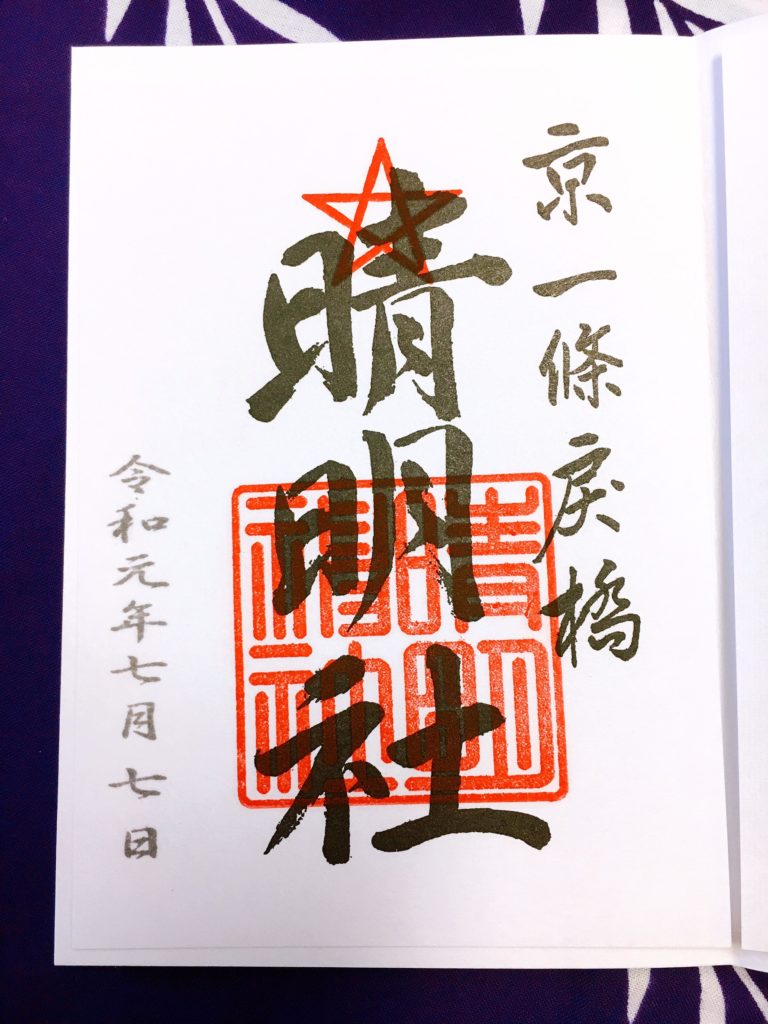 京一條戻橋
晴明社
令和元年七月七日